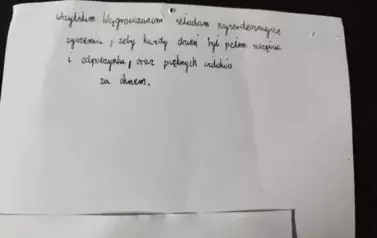 Wszystkim Wągrowiczanom składam najserdeczniejsze
życzenia, żeby każdy dzień był pełen szczęścia
i odpoczynku, oraz pięknych widoków
za oknem.